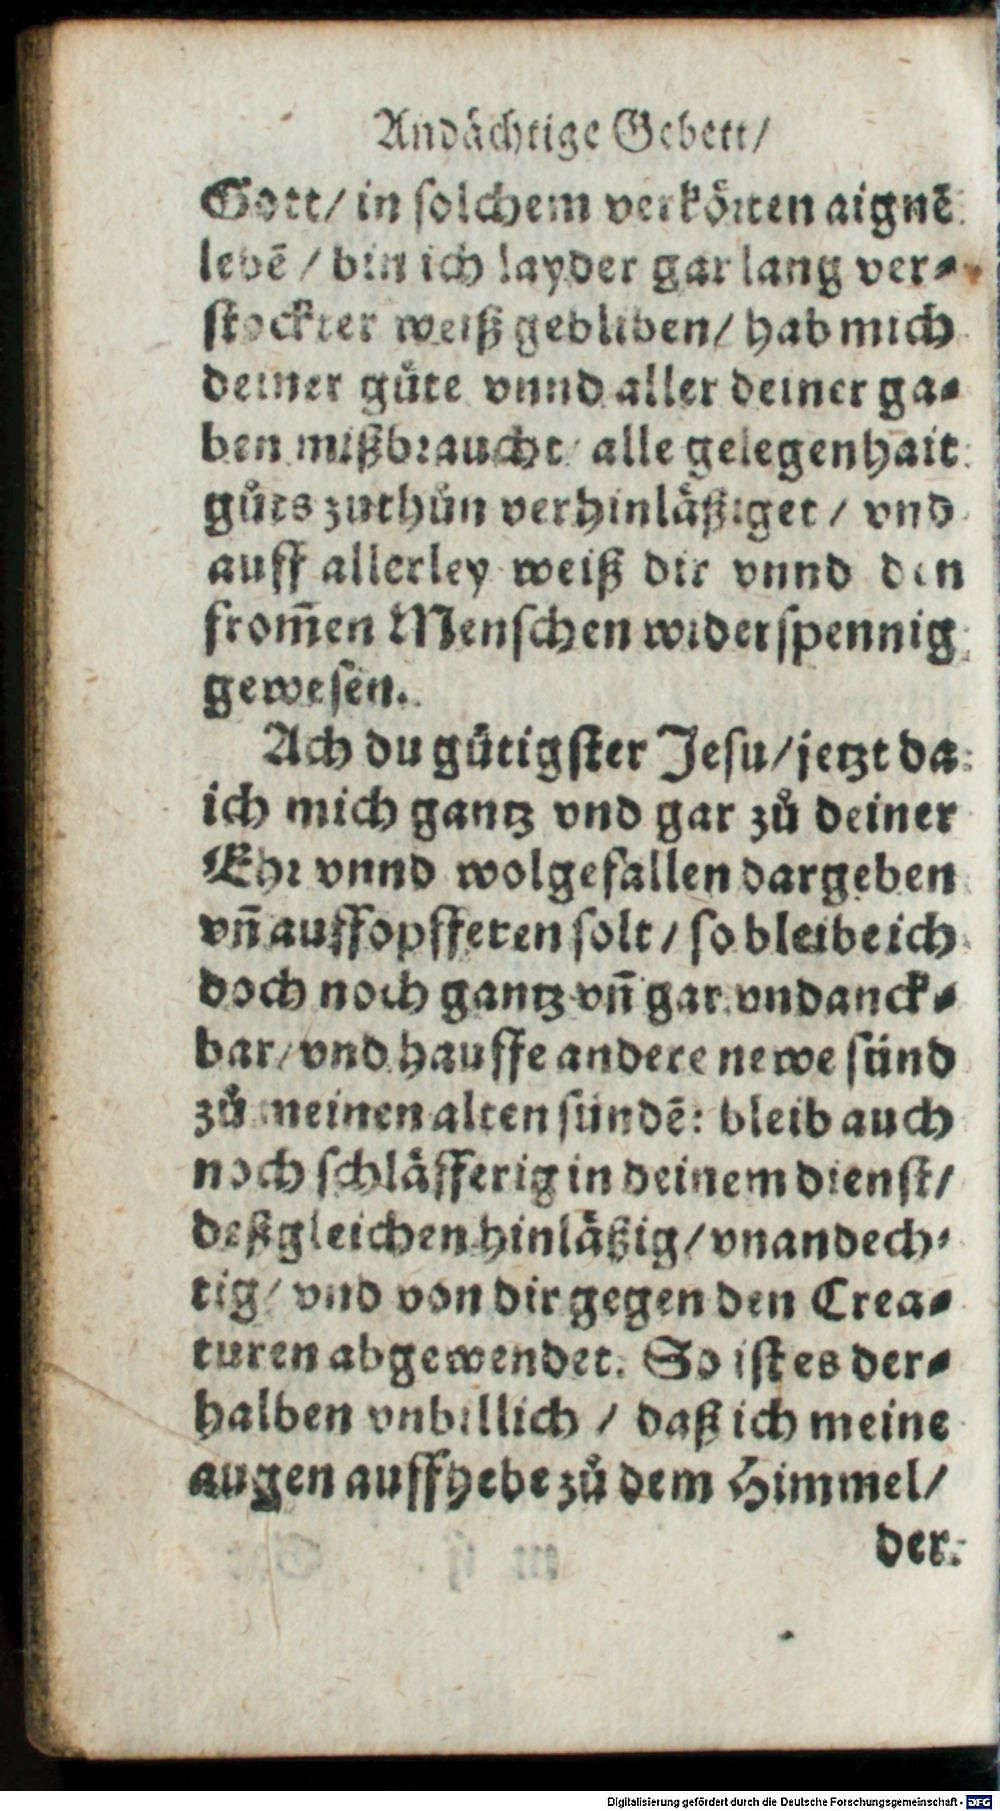 Andächtige Gebett/
Gott/ in solchem verkörten aignẽ
lebẽ / bin ich layder gar lang ver-
stockter weiß gebliben/ hab mich
deiner güte vnnd aller deiner ga-
ben mißbraucht/ alle gelegenhait
gůts zuthůn verhinläßiget / vnd
auff allerley weiß dir vnnd den
from̃en Menschen widerspennig
gewesen.
Ach du gütigster Jesu/ jetzt da
ich mich gantz vnd gar zů deiner
Ehr vnnd wolgefallen dargeben
vñ auffopfferen solt / so bleibe ich
doch noch gantz vñ gar vndanck-
bar/ vnd hauffe andere newe sünd
zů meinen alten sündẽ: bleib auch
noch schläfferig in deinem dienst/
deßgleichen hinläßig/ vnandech-
tig/ vnd von dir gegen den Crea-
turen abgewendet. So ist es der-
halben vnbillich / daß ich meine
augen auffhebe zů dem Himmel/
der
Digitalisierung gefördert durch die Deutsche Forschungsgemeinschaft - DFG